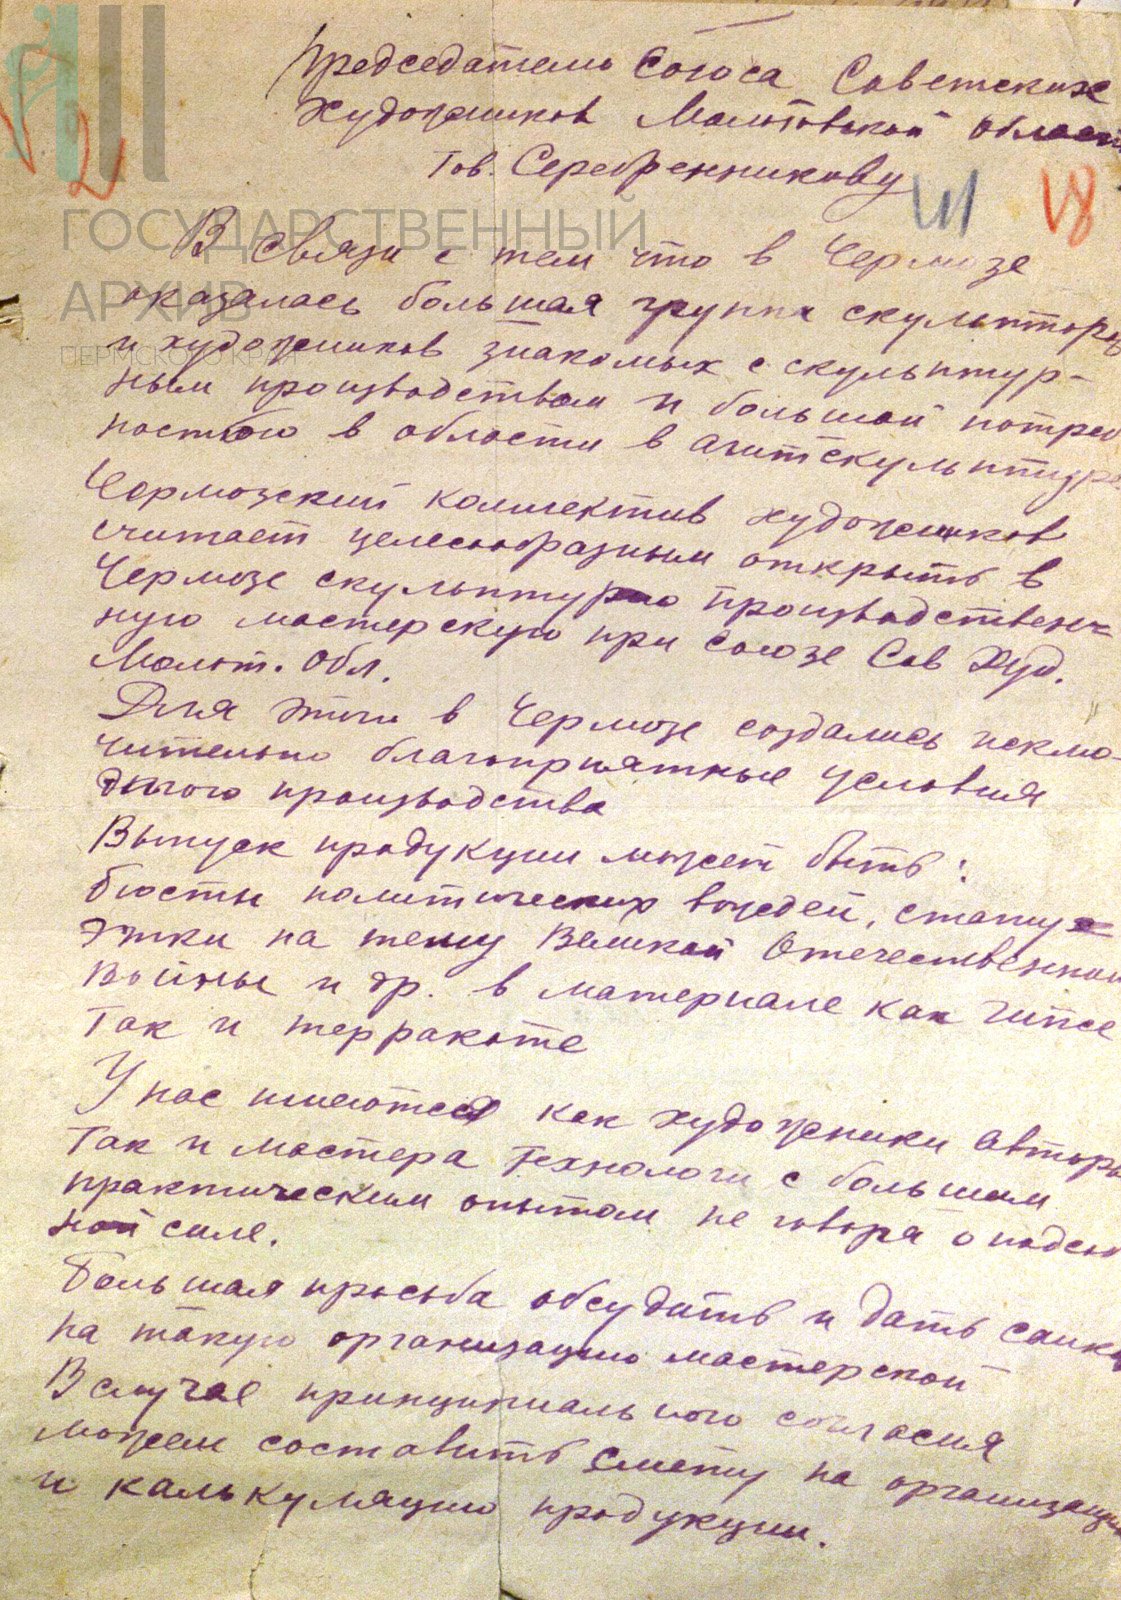 Председателю Союза Советских
Художников Молотовской области
тов. Серебренникову
41 V8
V2
ГОСУДАРСТВЕННЫЙ
АРХИВ
ПЕРМСКОГО КРАЯ
В связи с тем что в Чермозе
оказалась большая группа скульпторов
и художников знакомых с скульптур-
ным производством и большой потреб
ностью в области в агитскульптуре
Чермозский коллектив художников
считает целесообразным открыть в
Чермозе скульптурно производствен-
ную мастерскую при Союзе Сов Худ.
Молот. Обл.
Для этого в Чермозе создались исклю-
чительно благоприятные условия
этого производства
Выпуск продукции может быть:
бюсты политических вождей, стату-
этки на тему Великой Отечественной
Войны и др. в материале как гипсе
так и терракоте
У нас имеются как художники авторы
так и мастера технологи с большим
практическим опытом не говоря о подсоб
ной силе.
Большая просьба обсудить и дать санкц
на такую организацию мастерской
В случае принципиального согласия
можем составить смету на организацию
и калькуляцию продукции.